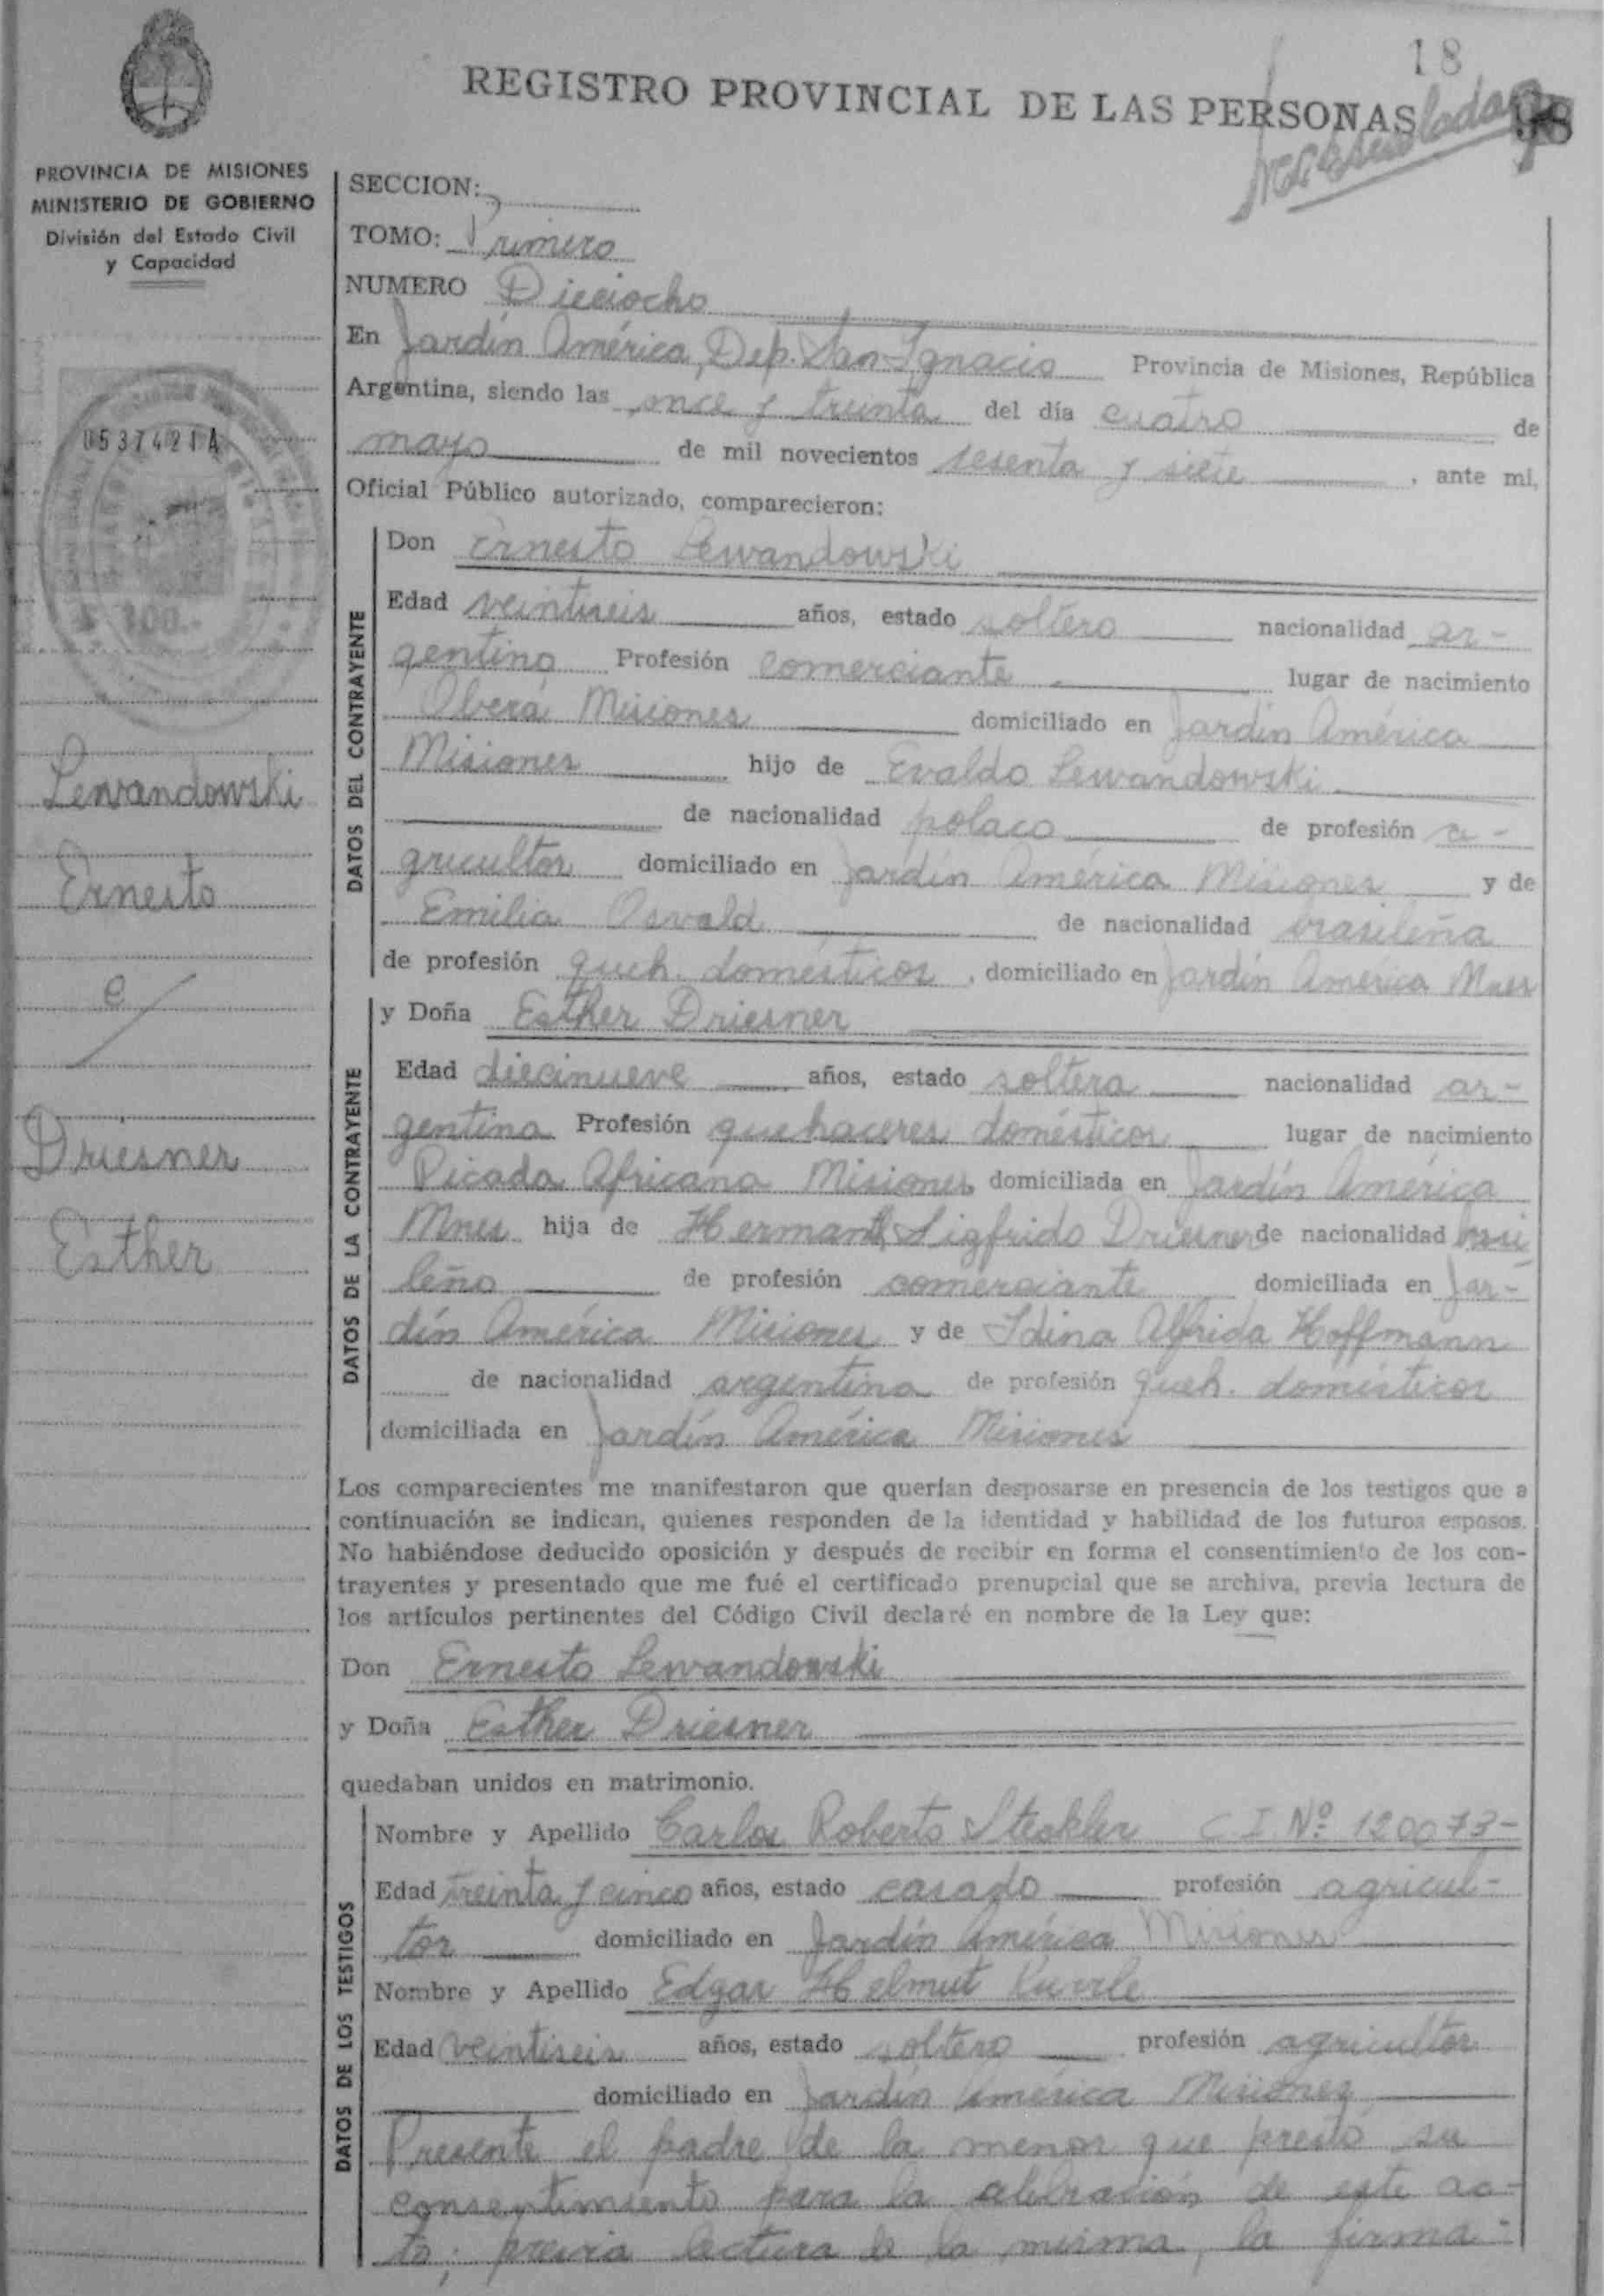 18
REGISTRO PROVINCIAL DE LAS PERSONAS
98
PROVINCIA DE MISIONES
MINISTERIO DE GOBIERNO
División del Estado Civil
y Capacidad
0537421A
$ 100.-
Lewandowski
Ernesto
c/
Driesner
Esther
SECCION:
TOMO: Primero
NUMERO Dieciocho
En Jardín América, Dep. San Ignacio Provincia de Misiones, República
Argentina, siendo las once y treinta del día cuatro de
mayo de mil novecientos sesenta y siete, ante mi,
Oficial Público autorizado, comparecieron:
DATOS DEL CONTRAYENTE
Don Ernesto Lewandowski
Edad veintiseis años, estado soltero nacionalidad ar-
gentino Profesión comerciante lugar de nacimiento
Oberá Misiones domiciliado en Jardín América
Misiones hijo de Evaldo Lewandowski
de nacionalidad polaco de profesión a-
gricultor domiciliado en Jardín América Misiones y de
Emilia Osvald de nacionalidad brasileña
de profesión queh. domésticos, domiciliado en Jardín América Mnes
DATOS DE LA CONTRAYENTE
y Doña Esther Driesner
Edad diecinueve años, estado soltera nacionalidad ar-
gentina Profesión quehaceres domésticos lugar de nacimiento
Picada Africana Misiones domiciliada en Jardín América
Mnes hija de Sigfrido Driesner de nacionalidad brasi
leño de profesión comerciante domiciliada en Jar-
dín América Misiones y de Idina Alfrida Hoffmann
de nacionalidad argentina de profesión queh. domésticos
domiciliada en Jardín América Misiones
Los comparecientes me manifestaron que querían desposarse en presencia de los testigos que a
continuación se indican, quienes responden de la identidad y habilidad de los futuros esposos.
No habiéndose deducido oposición y después de recibir en forma el consentimiento de los con-
trayentes y presentado que me fué el certificado prenupcial que se archiva, previa lectura de
los artículos pertinentes del Código Civil declaré en nombre de la Ley que:
Don Ernesto Lewandowski
y Doña Esther Driesner
quedaban unidos en matrimonio.
DATOS DE LOS TESTIGOS
Nombre y Apellido Carlos Roberto C.I. Nº 120073-
Edad treinta y cinco años, estado casado profesión agricul-
tor domiciliado en Jardín América Misiones
Nombre y Apellido Edgar Helmut
Edad veintiseis años, estado soltero profesión agricultor
domiciliado en Jardín América Misiones
Presente el padre de la menor que prestó su
consentimiento para la celebración de este ac-
to; previa lectura de la misma, la firma-